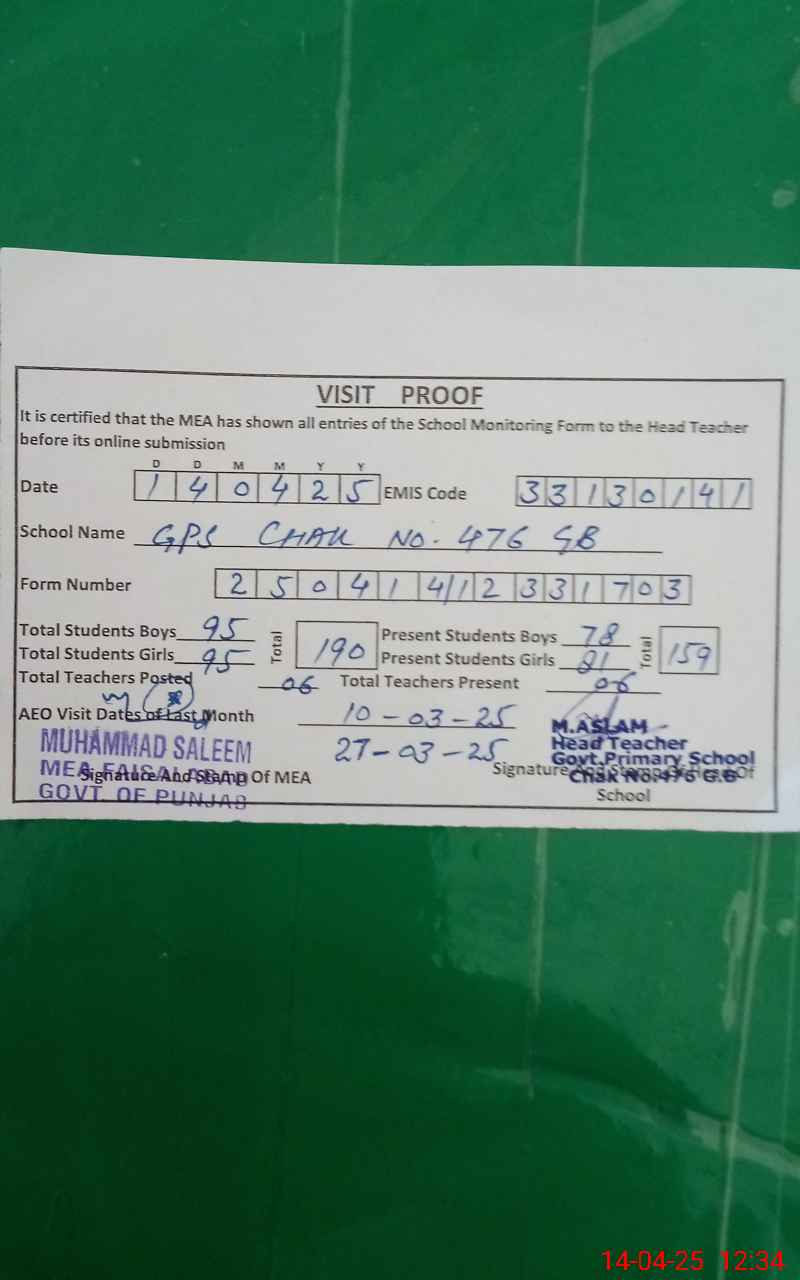 VISIT PROOF
It is certified that the MEA has shown all entries of the School Monitoring Form to the Head Teacher
before its online submission
D D M M Y Y
Date 1 4 0 4 2 5 EMIS Code 3 3 1 3 0 1 4 1
School Name GPS CHAK NO. 476 GB
Form Number 2 5 0 4 1 4 1 2 3 3 1 7 0 3
Total Students Boys 95 Total 190 Present Students Boys 78 Total 159
Total Students Girls 95 Present Students Girls 81
Total Teachers Posted 06 Total Teachers Present 06
AEO Visit Dates of Last Month 10-03-25
27-03-25
MUHAMMAD SALEEM
MEA FAISALABAD
GOVT. OF PUNJAB
Signature And Stamp Of MEA
M.ASLAM
Head Teacher
Govt.Primary School
Chak No.476 G.B
Signature And Stamp Of Head Of
School
14-04-25 12:34